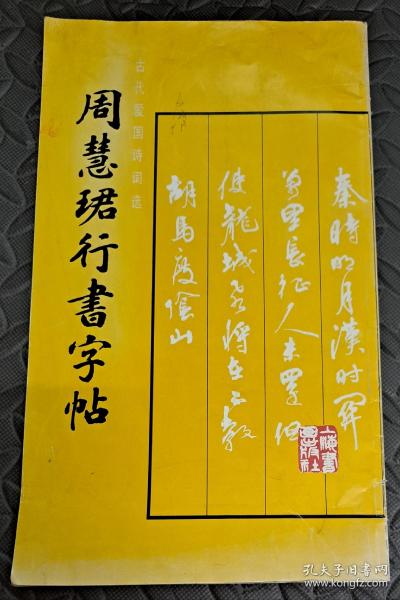 周慧珺行書字帖
古代爱国诗词选
秦時明月漢时関
萬里長征人未還但
使龍城飛將在不教
胡馬度陰山
上海書画出版社
孔夫子旧书网
www.kongfz.com